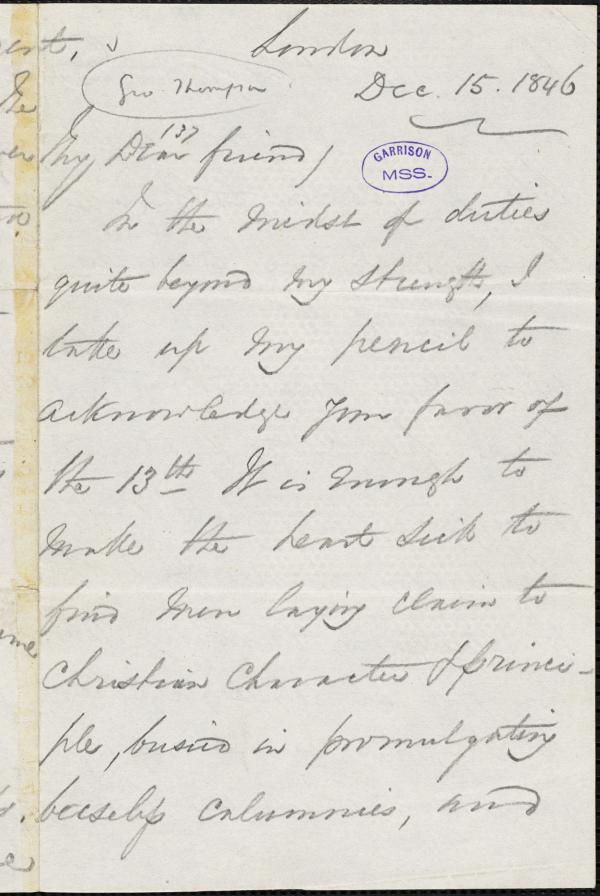 London
Geo. Thompson
Dec. 15. 1846
(3)
My Dear friend,
GARRISON
MSS.
In the midst of duties
quite beyond my strength, I
take up my pencil to
acknowledge your favor of
the 13th It is enough to
make the heart sick to
find men laying claim to
Christian Character & princi-
ple, busied in promulgating
baseless calumnies, and